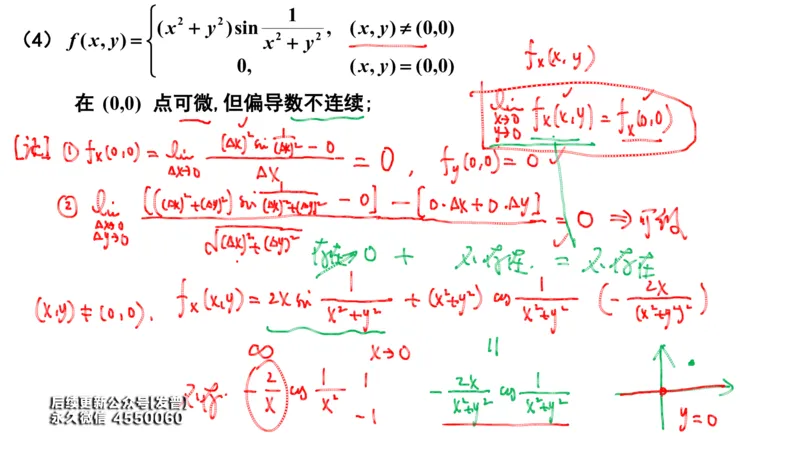 (4) f(x,y) = { (x² + y²) sin 1/(x² + y²), (x,y) ≠ (0,0)
0, (x,y) = (0,0)
在 (0,0) 点可微,但偏导数不连续;
f_x(x,y)
lim_{x→0, y→0} f_x(x,y) = f_x(0,0)
[证] ① f_x(0,0) = lim_{Δx→0} ((Δx)² sin 1/(Δx)² - 0)/Δx = 0, f_y(0,0) = 0
② lim_{Δx→0, Δy→0} ([((Δx)²+(Δy)²) sin 1/((Δx)²+(Δy)²) - 0] - [0·Δx + 0·Δy])/√((Δx)²+(Δy)²) = 0 ⇒ 可微
存在 0 + 不存在. = 不存在
(x,y) ≠ (0,0), f_x(x,y) = 2x sin 1/(x²+y²) + (x²+y²) cos 1/(x²+y²) (- 2x/(x²+y²)²)
∞ x→0 =
- 2/x cos 1/x² 1 -1
- 2x/(x²+y²) cos 1/(x²+y²)
y=0
后续更新公众号[发普]
永久微信 4550060